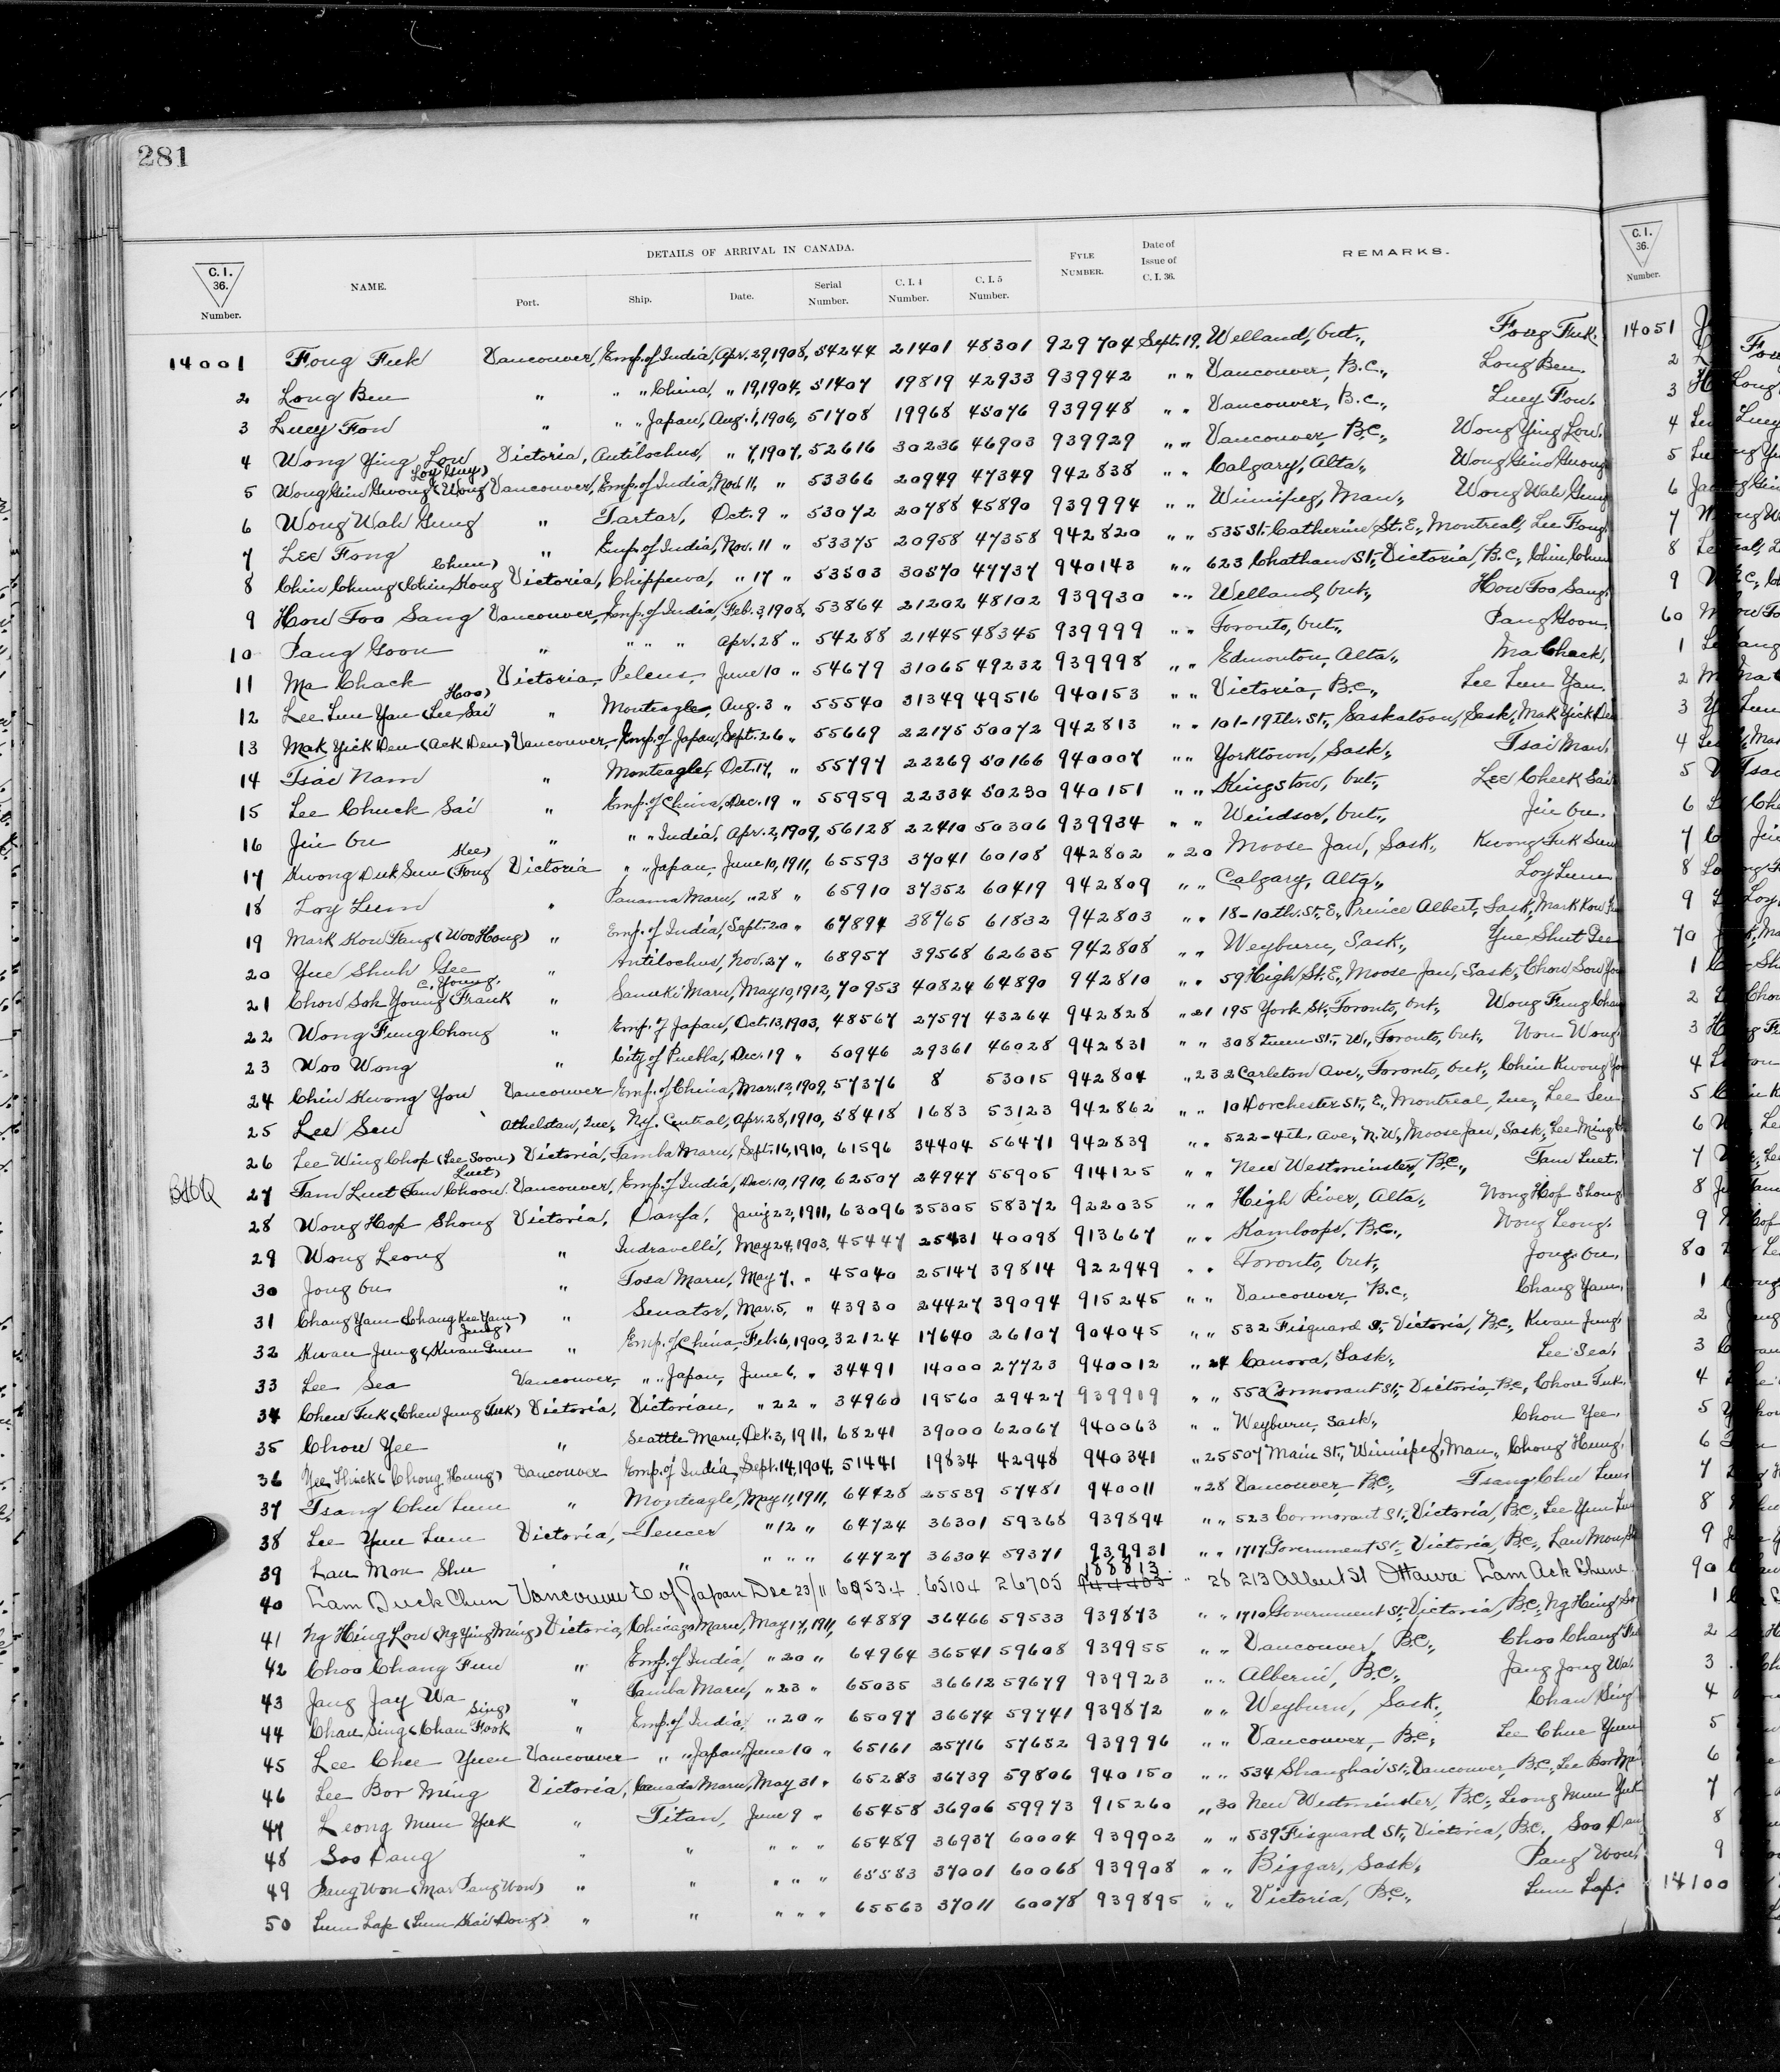 281
DETAILS OF ARRIVAL IN CANADA.
C. I. 36. Number. NAME. Port. Ship. Date. Serial Number. C. I. 4 Number. C. I. 5 Number. FYLE NUMBER. Date of Issue of C. I. 36. REMARKS. C. I. 36. Number.
14001 Fong Fuk Vancouver, Emp. of India, Apr. 29, 1908, 54244 21401 48301 929704 Sept. 19. Welland, Ont., Fong Fuk. 14051
2 Long Ben " " " China, " 19, 1904, 51407 19819 42933 939942 " " Vancouver, B.C., Long Ben. 2
3 Luey Fow " " " Japan, Aug. 1, 1906, 51708 19968 45076 939948 " " Vancouver, B.C., Luey Fow. 3
4 Wong Ying Low Victoria, Antilochus, " 7, 1907, 52616 30236 46903 939929 " " Vancouver, B.C., Wong Ying Low. 4
5 Wong Gin Gwong (Wong Loy Guy) Vancouver, Emp. of India, Nov. 11, " 53366 20949 47349 942838 " " Calgary, Alta., Wong Gin Gwong 5
6 Wong Wah Gung " Tartar, Oct. 9 " 53072 20788 45890 939994 " " Winnipeg, Man., Wong Wah Gung 6
7 Lee Fong " Emp. of India, Nov. 11 " 53375 20958 47358 942820 " " 535 St. Catherine St. E., Montreal, Lee Fong 7
8 Chin Chung (Chin Kong Chun) Victoria, Chippewa, " 17 " 53503 30570 47737 940143 " " 623 Chatham St., Victoria, B.C., Chin Chun 8
9 How Foo Sang Vancouver, Emp. of India, Feb. 3, 1908, 53864 21202 48102 939930 " " Welland, Ont., How Foo Sang. 9
10 Pang Goon " " " " Apr. 28 " 54288 21445 48345 939999 " " Toronto, Ont., Pang Goon. 60
11 Ma Chack Victoria, Peleus, June 10 " 54679 31065 49232 939998 " " Edmonton, Alta., Ma Chack. 1
12 Lee Lun Yan (Lee Sai Hoo) " Monteagle, Aug. 3 " 55540 31349 49516 940153 " " Victoria, B.C., Lee Lun Yan. 2
13 Mak Yick Den (Ack Den) Vancouver, Emp. of Japan, Sept. 26 " 55669 22175 50072 942813 " " 101-19th. St., Saskatoon, Sask., Mak Yick Den 3
14 Tsai Nam " Monteagle, Oct. 17, " 55797 22269 50166 940007 " " Yorktown, Sask., Tsai Man. 4
15 Lee Chuck Sai " Emp. of China, Dec. 19 " 55959 22334 50230 940151 " " Kingston, Ont., Lee Cheek Sai 5
16 Jin On " " " India, Apr. 2, 1909, 56128 22410 50306 939934 " " Windsor, Ont., Jin On. 6
17 Kwong Duk Sun (Fong Kee) Victoria " " Japan, June 10, 1911, 65593 37041 60108 942802 " 20 Moose Jaw, Sask., Kwong Fuk Sun 7
18 Loy Lum " Panama Maru, " 28 " 65910 37352 60419 942809 " " Calgary, Alta., Loy Lum 8
19 Mark Kow Fang (Woo Hong) " Emp. of India, Sept. 20 " 67894 38765 61832 942803 " " 18-10th. St. E., Prince Albert, Sask., Mark Kow 9
20 Yue Shuh Gee " Antilochus, Nov. 27 " 68957 39568 62635 942808 " " Weyburn, Sask., Yue Shut Gee 70
21 Chow Soh Young (Frank C. Young. " Sanuki Maru, May 10, 1912, 70953 40824 64890 942810 " " 59 High St. E., Moose Jaw, Sask., Chow Sow 1
22 Wong Fung Chong " Emp. of Japan, Oct. 13, 1903, 48567 27597 43264 942828 " 21 195 York St., Toronto, Ont., Wong Fung Chan 2
23 Woo Wong " City of Puebla, Dec. 19 " 50946 29361 46028 942831 " " 308 Queen St., W., Toronto, Ont., Won Wong. 3
24 Chin Kwong You Vancouver Emp. of China, Mar. 12, 1909, 57376 8 53015 942804 " 23 2 Carleton Ave., Toronto, Ont., Chin Kwong 4
25 Lee Sen Athelstan, Que., N.Y. Central, Apr. 28, 1910, 58418 1683 53123 942862 " " 10 Dorchester St., E., Montreal, Que., Lee Sen 5
26 Lee Wing Chop (Lee Soon) Victoria, Tamba Maru, Sept. 16, 1910, 61596 34404 56471 942839 " " 522-4th. Ave., N.W., Moose Jaw, Sask., Lee Ming 6
27 Tam Luet (Tam Choon Luet) Vancouver, Emp. of India, Dec. 10, 1910, 62507 24947 55905 914125 " " New Westminster, B.C., Tam Luet. 7
28 Wong Hop Shong Victoria, Oanfa, Jany. 22, 1911, 63096 35305 58372 922035 " " High River, Alta., Wong Hop Shong 8
29 Wong Leong " Indravelli, May 24, 1903, 45447 25431 40098 913667 " " Kamloops, B.C., Wong Leong. 9
30 Jong On " Tosa Maru, May 7, " 45040 25147 39814 922949 " " Toronto, Ont., Jong On. 80
31 Chang Yam (Chang Kee Yam) " Senator, Mar. 5, " 43930 24427 39094 915245 " " Vancouver, B.C., Chang Yam. 1
32 Kwan Jung (Kwan Gum Jung) " Emp. of China, Feb. 6, 1900, 32124 17640 26107 904045 " " 532 Fisguard St., Victoria, B.C., Kwan Jung. 2
33 Lee Sea Vancouver, " " Japan, June 6, " 34491 14000 27723 940012 " 24 Canora, Sask., Lee Sea. 3
34 Chew Fuk (Chew Jung Fuk) Victoria, Victorian, " 22 " 34960 19560 29427 939919 " " 553 Cormorant St., Victoria, B.C., Chow Fuk. 4
35 Chow Yee " Seattle Maru, Oct. 3, 1911, 68241 39000 62067 940063 " " Weyburn, Sask., Chow Yee. 5
36 Yee Thick (Chong Hung) Vancouver Emp. of India, Sept. 14, 1904, 51441 19834 42948 940341 " 25 507 Main St., Winnipeg, Man., Chong Hung. 6
37 Tsang Chu Lum " Monteagle, May 11, 1911, 64428 25539 57481 940011 " 28 Vancouver, B.C., Tsang Chu Lum 7
38 Lee Yun Lum Victoria, Teucer " 12 " 64724 36301 59368 939894 " " 523 Cormorant St., Victoria, B.C., Lee Yun 8
39 Lau Mon Shu " " " " " 64727 36304 59371 939931 " " 1717 Government St., Victoria, B.C., Lau Mon 9
188813
40 Lam Duck Chun Vancouver E of Japan Dec 23/11 69534 65104 26705 944483 " 28 213 Albert St Ottawa Lam Ack Chune 90
41 Ng Hing Low (Ng Ying Ming) Victoria, Chicago Maru, May 17, 1911, 64889 36466 59533 939873 " " 1710 Government St., Victoria, B.C., Ng Hing 1
42 Choo Chang Fun " Emp. of India, " 20 " 64964 36541 59608 939955 " " Vancouver, B.C., Choo Chang 2
43 Jang Jay Wa " Tamba Maru, " 23 " 65035 36612 59679 939923 " " Alberni, B.C., Jang Jong Wa. 3
44 Chan Sing (Chan Fook Sing) " Emp. of India, " 20 " 65097 36674 59741 939872 " " Weyburn, Sask., Chan Sing 4
45 Lee Chee Yuen Vancouver " " Japan, June 10 " 65161 25716 57652 939996 " " Vancouver, B.C., Lee Chue Yuen 5
46 Lee Bor Ming Victoria, Canada Maru, May 31 " 65283 36739 59806 940150 " " 534 Shanghai St., Vancouver, B.C., Lee Bor 6
47 Leong Mun Yuk " Titan, June 9 " 65458 36906 59973 915260 " 30 New Westminster, B.C., Leong Mun Yuk 7
48 Soo Dang " " " " " 65489 36937 60004 939902 " " 539 Fisguard St., Victoria, B.C., Soo Dan 8
49 Pang Won (Mar Pang Won) " " " " " 65583 37001 60068 939908 " " Biggar, Sask., Pang Won. 9
50 Lum Lap (Lum Kai Dong) " " " " " 65563 37011 60078 939895 " " Victoria, B.C., Lum Lap. 14100